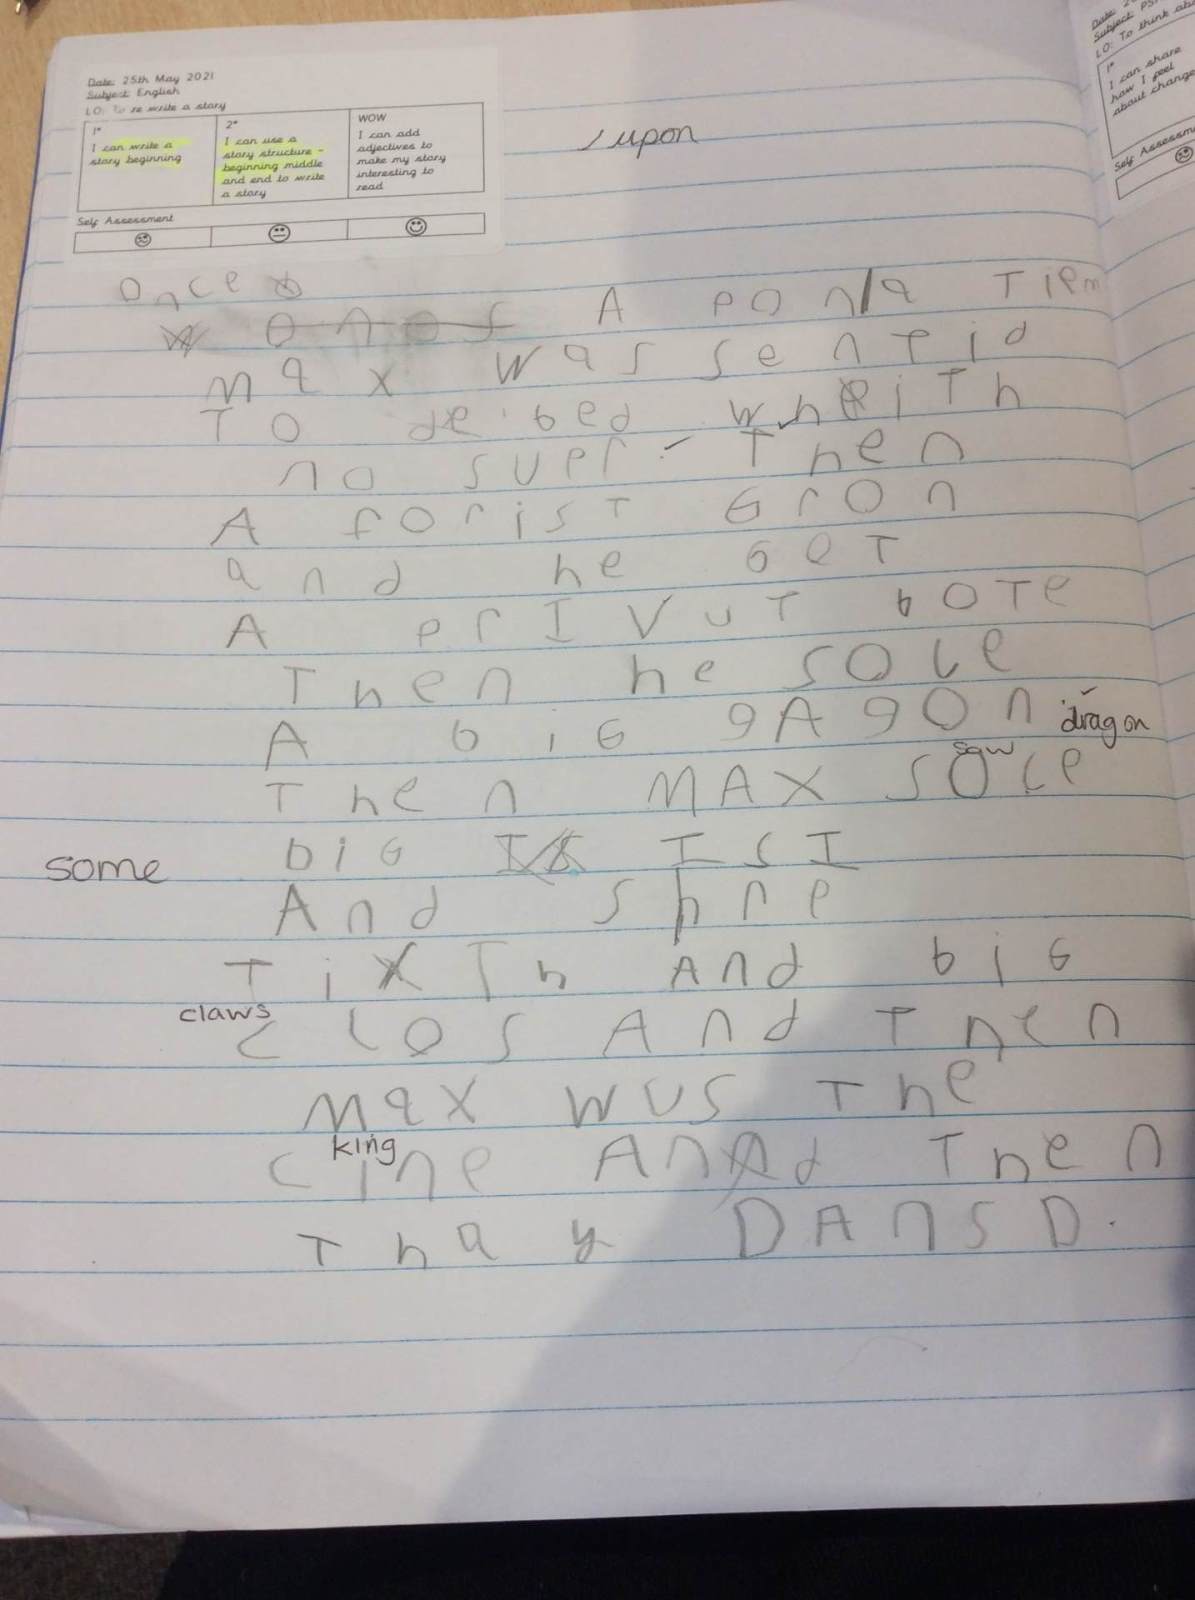 Date: 25th May 2021
Subject: English
LO: To re write a story
1*
I can write a
story beginning
2*
I can use a
story structure -
beginning middle
and end to write
a story
WOW
I can add
adjectives to
make my story
interesting to
read
Self Assessment
upon
Once
A pon/a Tiem
max was sentid
To de bed wheith
no super - Then
A forist Gron
and he GeT
A prIVuT boTe
Then he soce
A big gAgon dragon
saw
Then MAX soce
some big ISI
And shrp
TiTh And big
claws
clos And Then
max wus The
king
cine And Then
Thay DAnsD.
Subject:
LO: To think
1*
I can share
how I feel
about change
Self